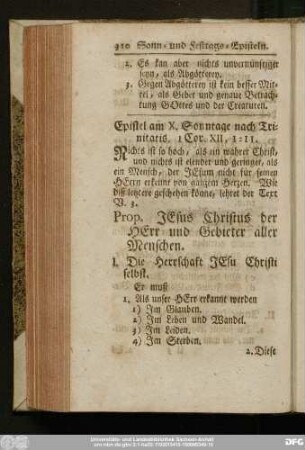 310 Sonn- und Festtags-Episteln.
2. Es kan aber nichts unvernünftiger
seyn, als Abgötterey.
3. Gegen Abgötterey ist kein besser Mit-
tel, als Gebet und genaue Betrach-
tung GOttes und der Creaturen.
Epistel am X. Sonntage nach Tri-
nitatis. 1 Cor. XII, 1-11.
Nichts ist so hoch, als ein wahrer Christ,
und nichts ist elender und geringer, als
ein Mensch, der JEsum nicht für seinen
HErrn erkannt von ganzem Herzen. Wie
diß letztere geschehen könne, lehret der Text
V. 3.
Prop. JEsus Christus der
HErr und Gebieter aller
Menschen.
I. Die Herrschaft JEsu Christi
selbst.
Er muß
1. Als unser HErr erkannt werden
1) Im Glauben.
2) Im Leben und Wandel.
3) Im Leiden.
4) Im Sterben.
2. Diese
Universitäts- und Landesbibliothek Sachsen-Anhalt
DFG